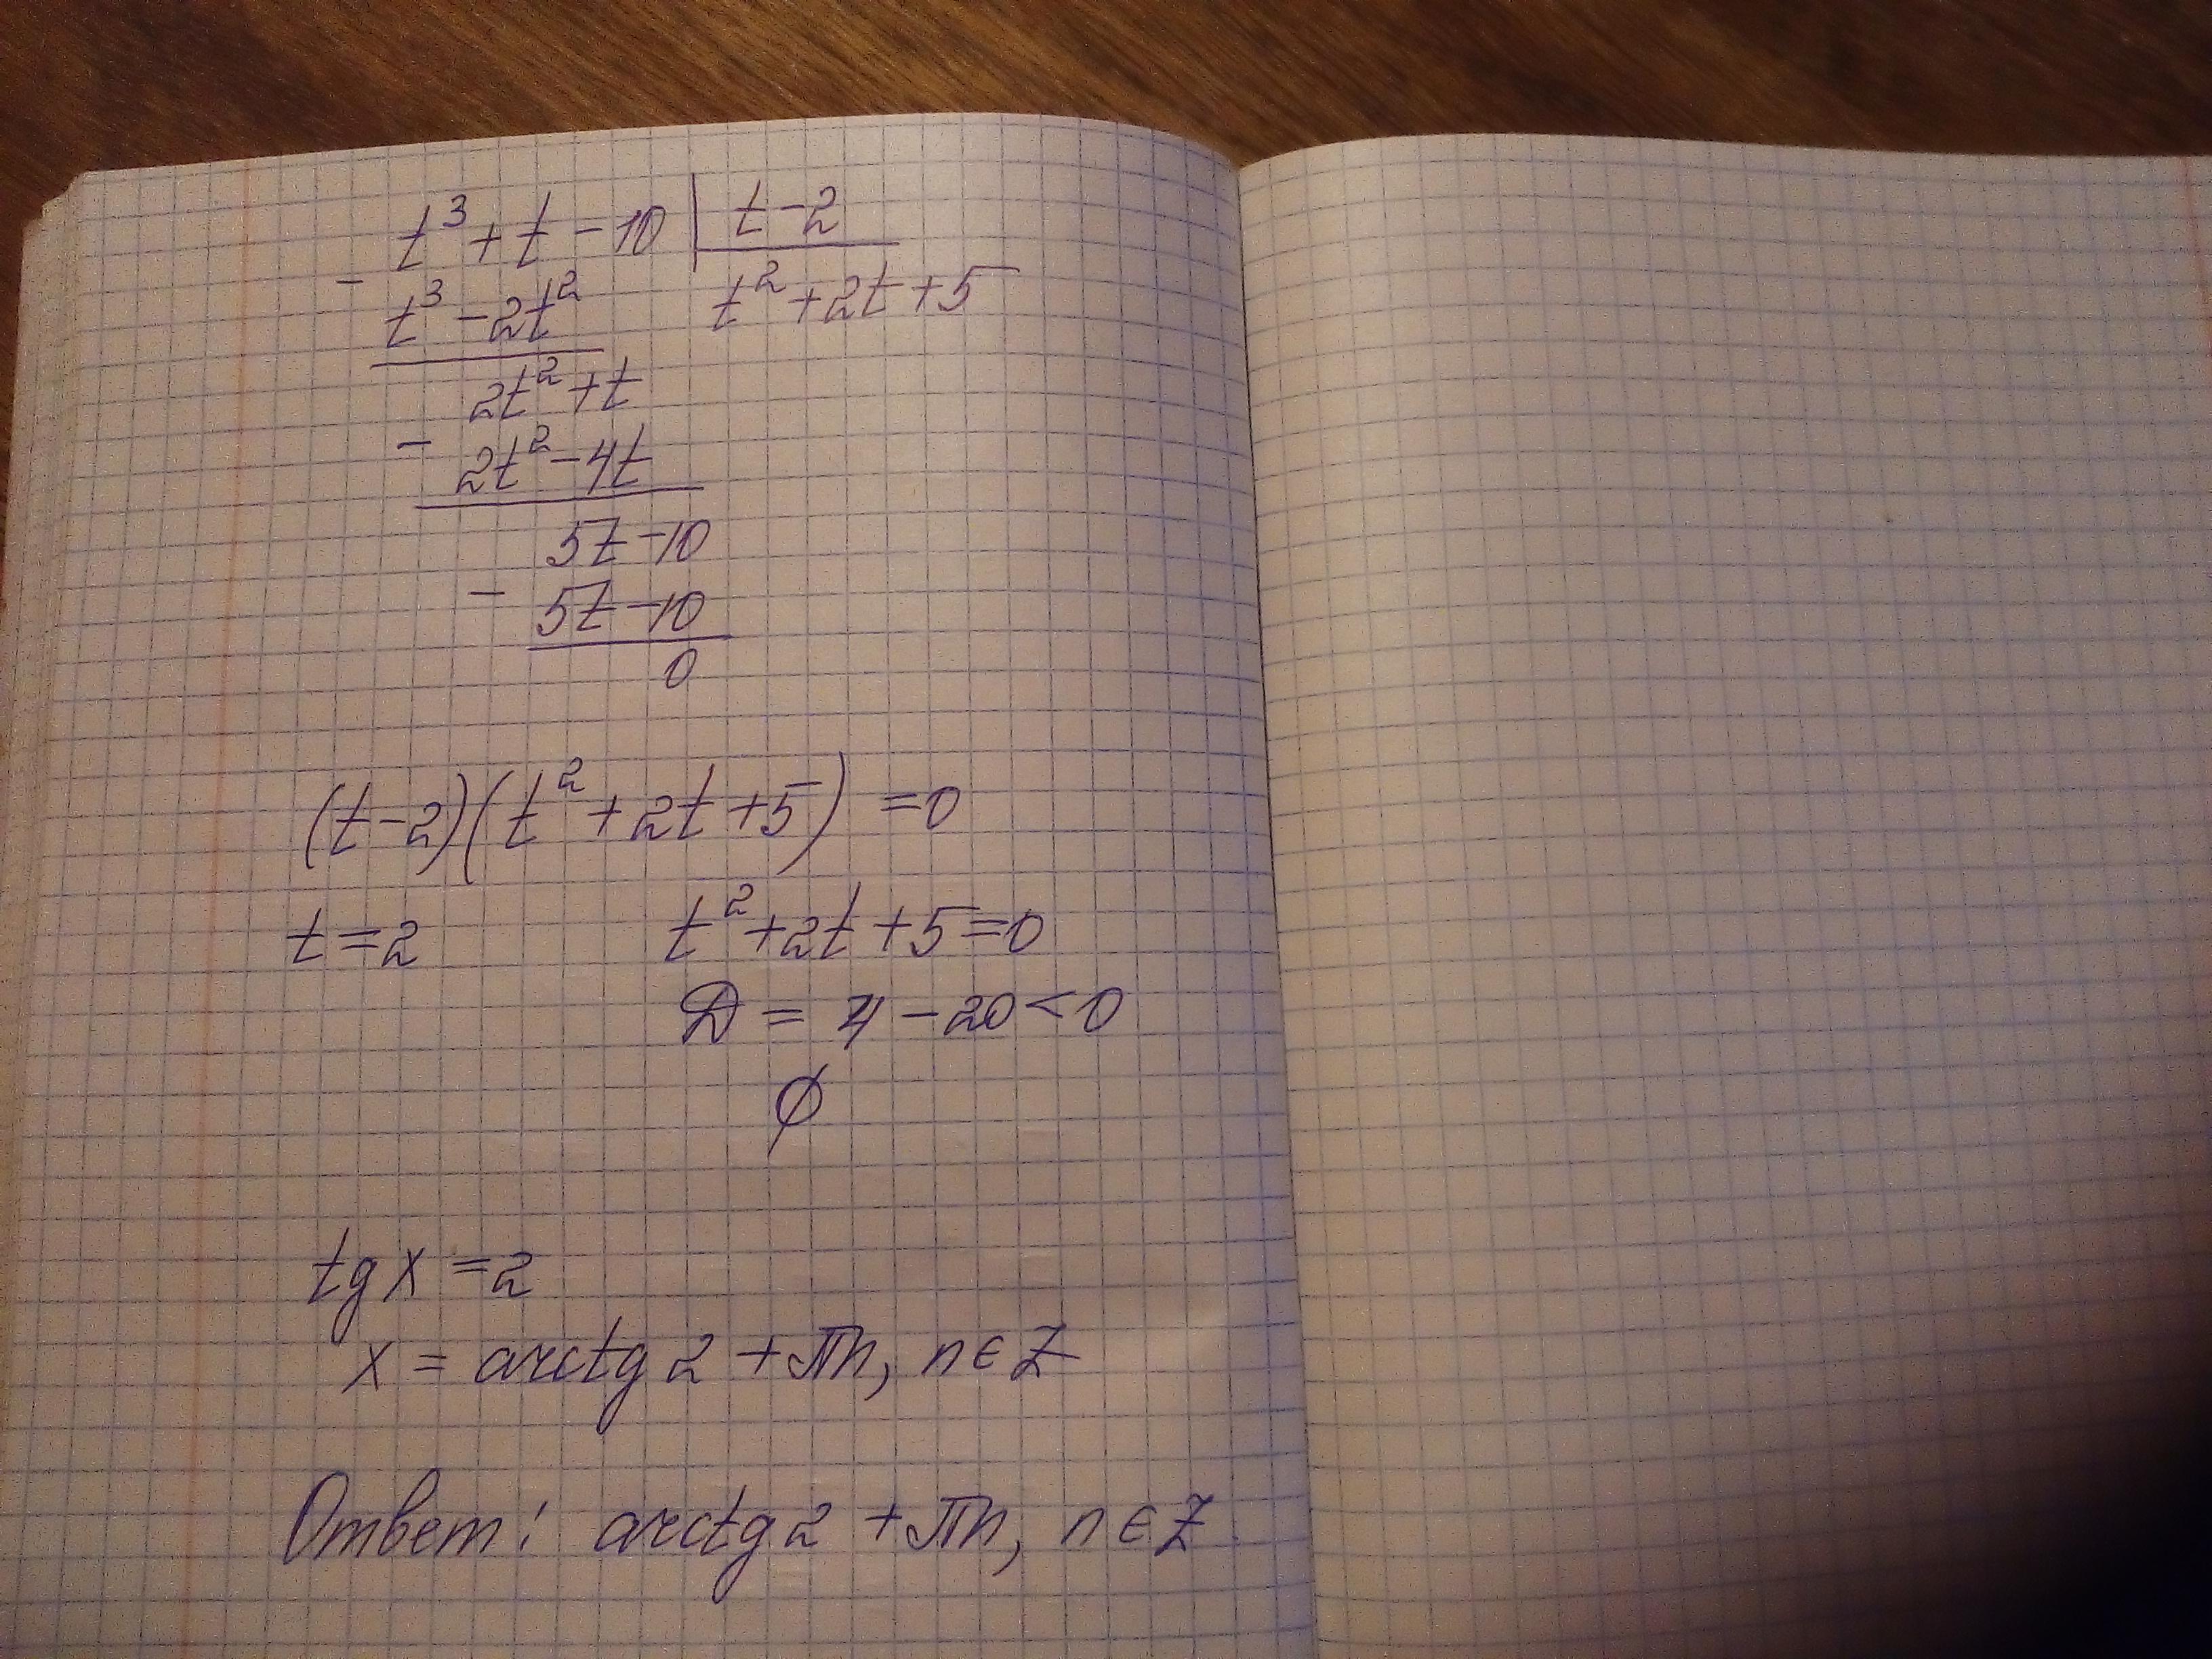 t³ + t - 10 | t - 2
- t³ - 2t² t² + 2t + 5
2t² + t
- 2t² - 4t
5t - 10
- 5t - 10
0
(t - 2)(t² + 2t + 5) = 0
t = 2 t² + 2t + 5 = 0
D = 4 - 20 < 0
∅
tg x = 2
x = arctg 2 + πn, n ∈ Z
Ответ: arctg 2 + πn, n ∈ Z.